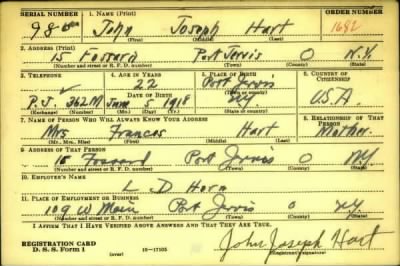 SERIAL NUMBER 1. NAME (Print) ORDER NUMBER
John Joseph Hart 1692
(First) (Middle) (Last)
2. ADDRESS (Print)
15 Port Jervis O N.Y.
(Number and street or R. F. D. number) (Town) (County) (State)
3. TELEPHONE 4. AGE IN YEARS 5. PLACE OF BIRTH 6. COUNTRY OF CITIZENSHIP
22 Port Jervis
DATE OF BIRTH (Town or county)
P.J. 362M 5 1918 NY U.S.A.
(Exchange) (Number) (Mo.) (Day) (Yr.) (State or country)
7. NAME OF PERSON WHO WILL ALWAYS KNOW YOUR ADDRESS 8. RELATIONSHIP OF THAT PERSON
Mrs Frances Hart Mother.
(Mr., Mrs., Miss) (First) (Middle) (Last)
9. ADDRESS OF THAT PERSON
15 Port Jervis O NY
(Number and street or R. F. D. number) (Town) (County) (State)
10. EMPLOYER'S NAME
L D Horn
11. PLACE OF EMPLOYMENT OR BUSINESS
109 W Main Port Jervis O NY.
(Number and street or R. F. D. number) (Town) (County) (State)
I AFFIRM THAT I HAVE VERIFIED ABOVE ANSWERS AND THAT THEY ARE TRUE.
REGISTRATION CARD
D. S. S. Form 1 (over) 16—17105 John Joseph Hart
(Registrant's signature)